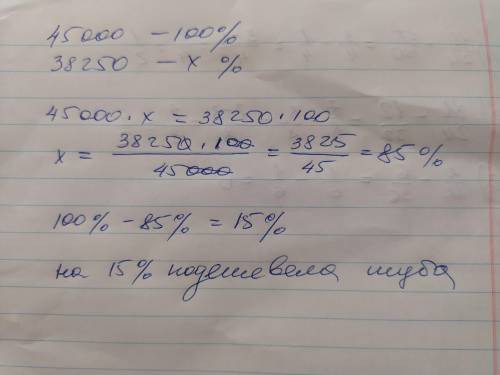 45000 - 100%
38250 - x %
45000 · x = 38250 · 100
x = 38250 · 100 / 45000 = 3825 / 45 = 85%
100% - 85% = 15%
на 15% подешевела шуба